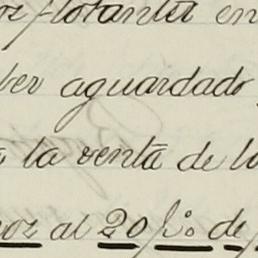 flotantes en
ber aguardado
a la venta de lo
noz al 20 p.% de